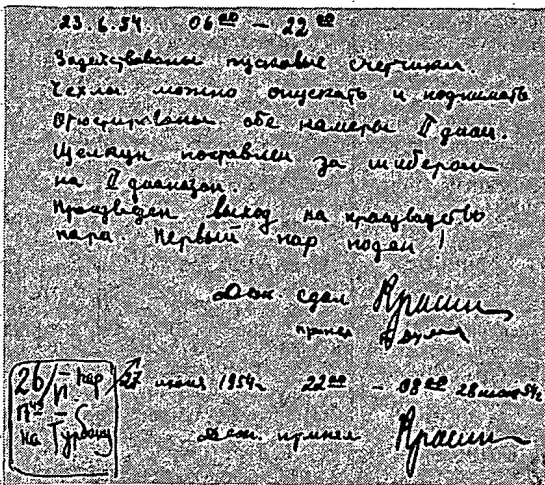 23.6.54. 06⁰⁰ — 22⁰⁰
Задействованы пусковые счетчики.
Чехлы можно опускать и поднимать
Отюстированы обе камеры II диап.
Щелкун поставлен за шибером
на II диапазон.
Произведен выход на производство
пара. Первый пар подан!
Деж. сдал Красин
принял
26/VI пар
17⁴⁵
на Турбину
27 июня 1954г. 22⁰⁰ – 08⁰⁰ 28 июня 54г.
Деж. принял Красин